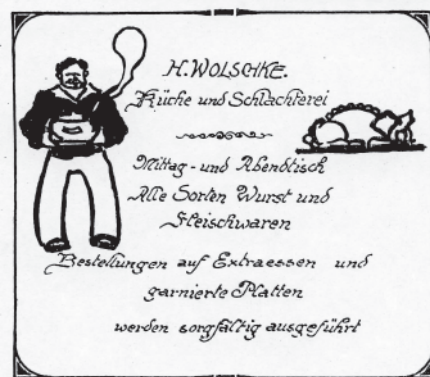 H. WOLSCHKE.
Küche und Schlachterei
Mittag - und Abendtisch
Alle Sorten Wurst und
Fleischwaren
Bestellungen auf Extraessen und
garnierte Platten
werden sorgfältig ausgeführt